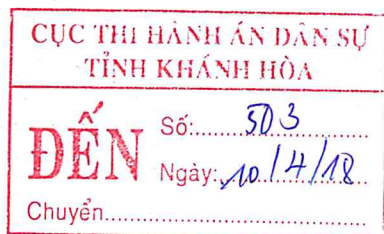 CỤC THI HÀNH ÁN DÂN SỰ
TỈNH KHÁNH HÒA
ĐẾN
Số:.......503..........
Ngày:.10/4/18.
Chuyển...............................